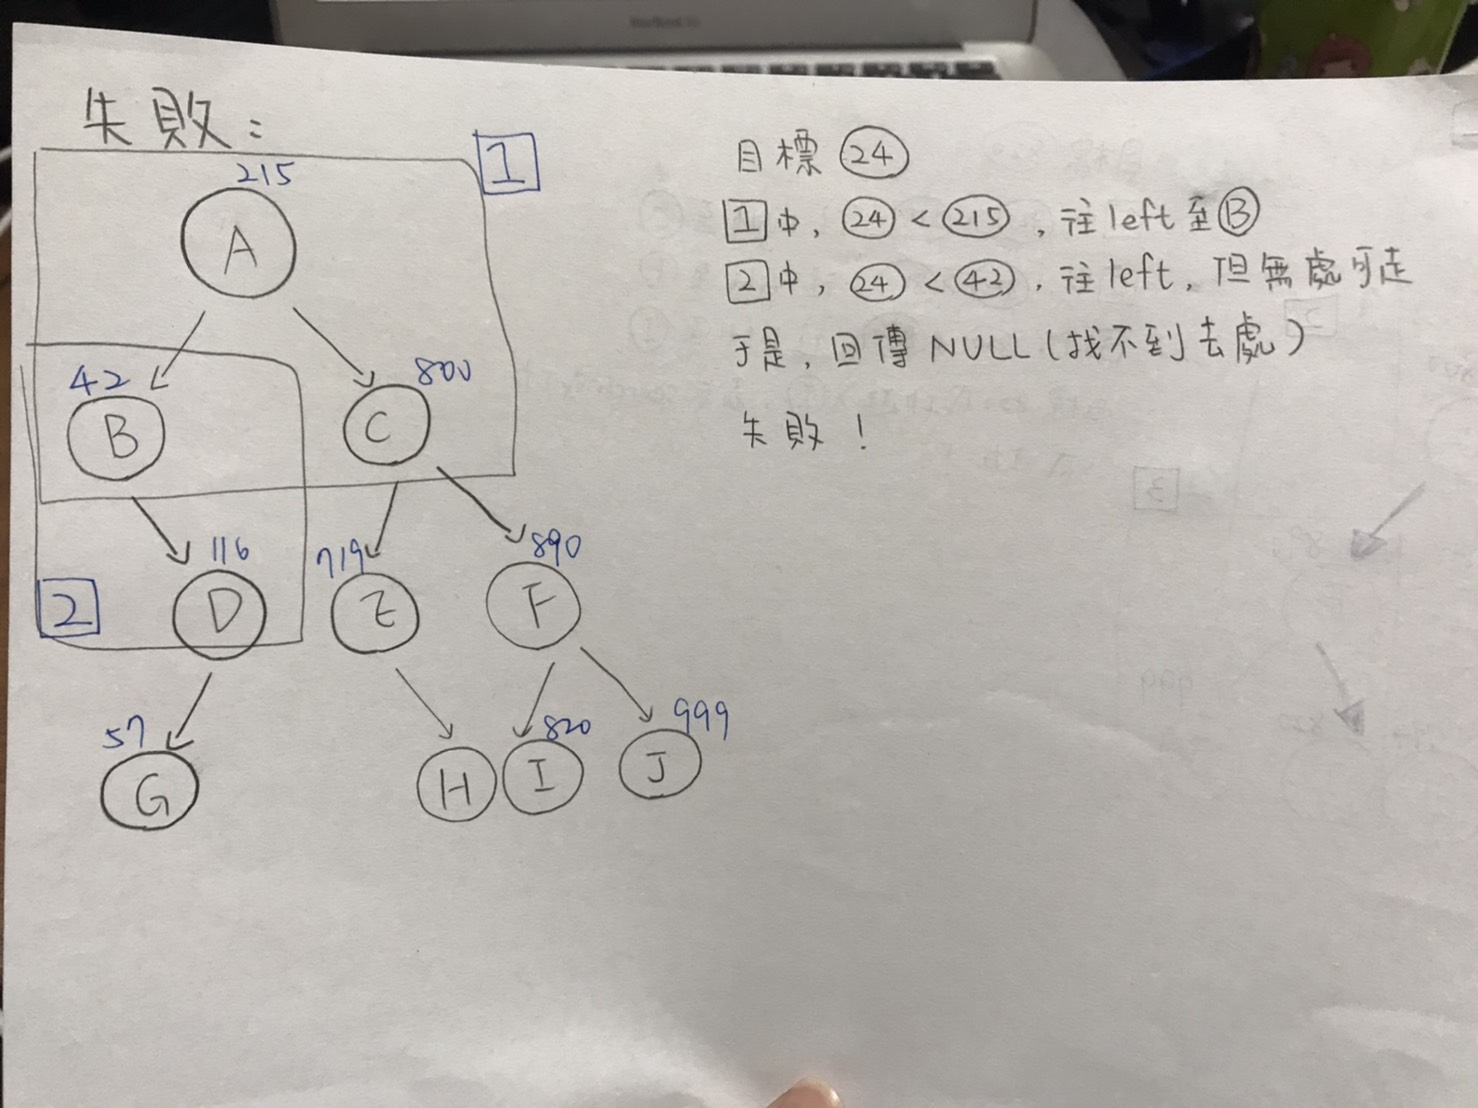 失敗：
1
215
A
42
B
800
C
2
116
D
719
E
890
F
57
G
H
820
I
999
J
目標 24
1中，24 < 215，往left至B
2中，24 < 42，往left，但無處可走
于是，回傳 NULL（找不到去處）
失敗！